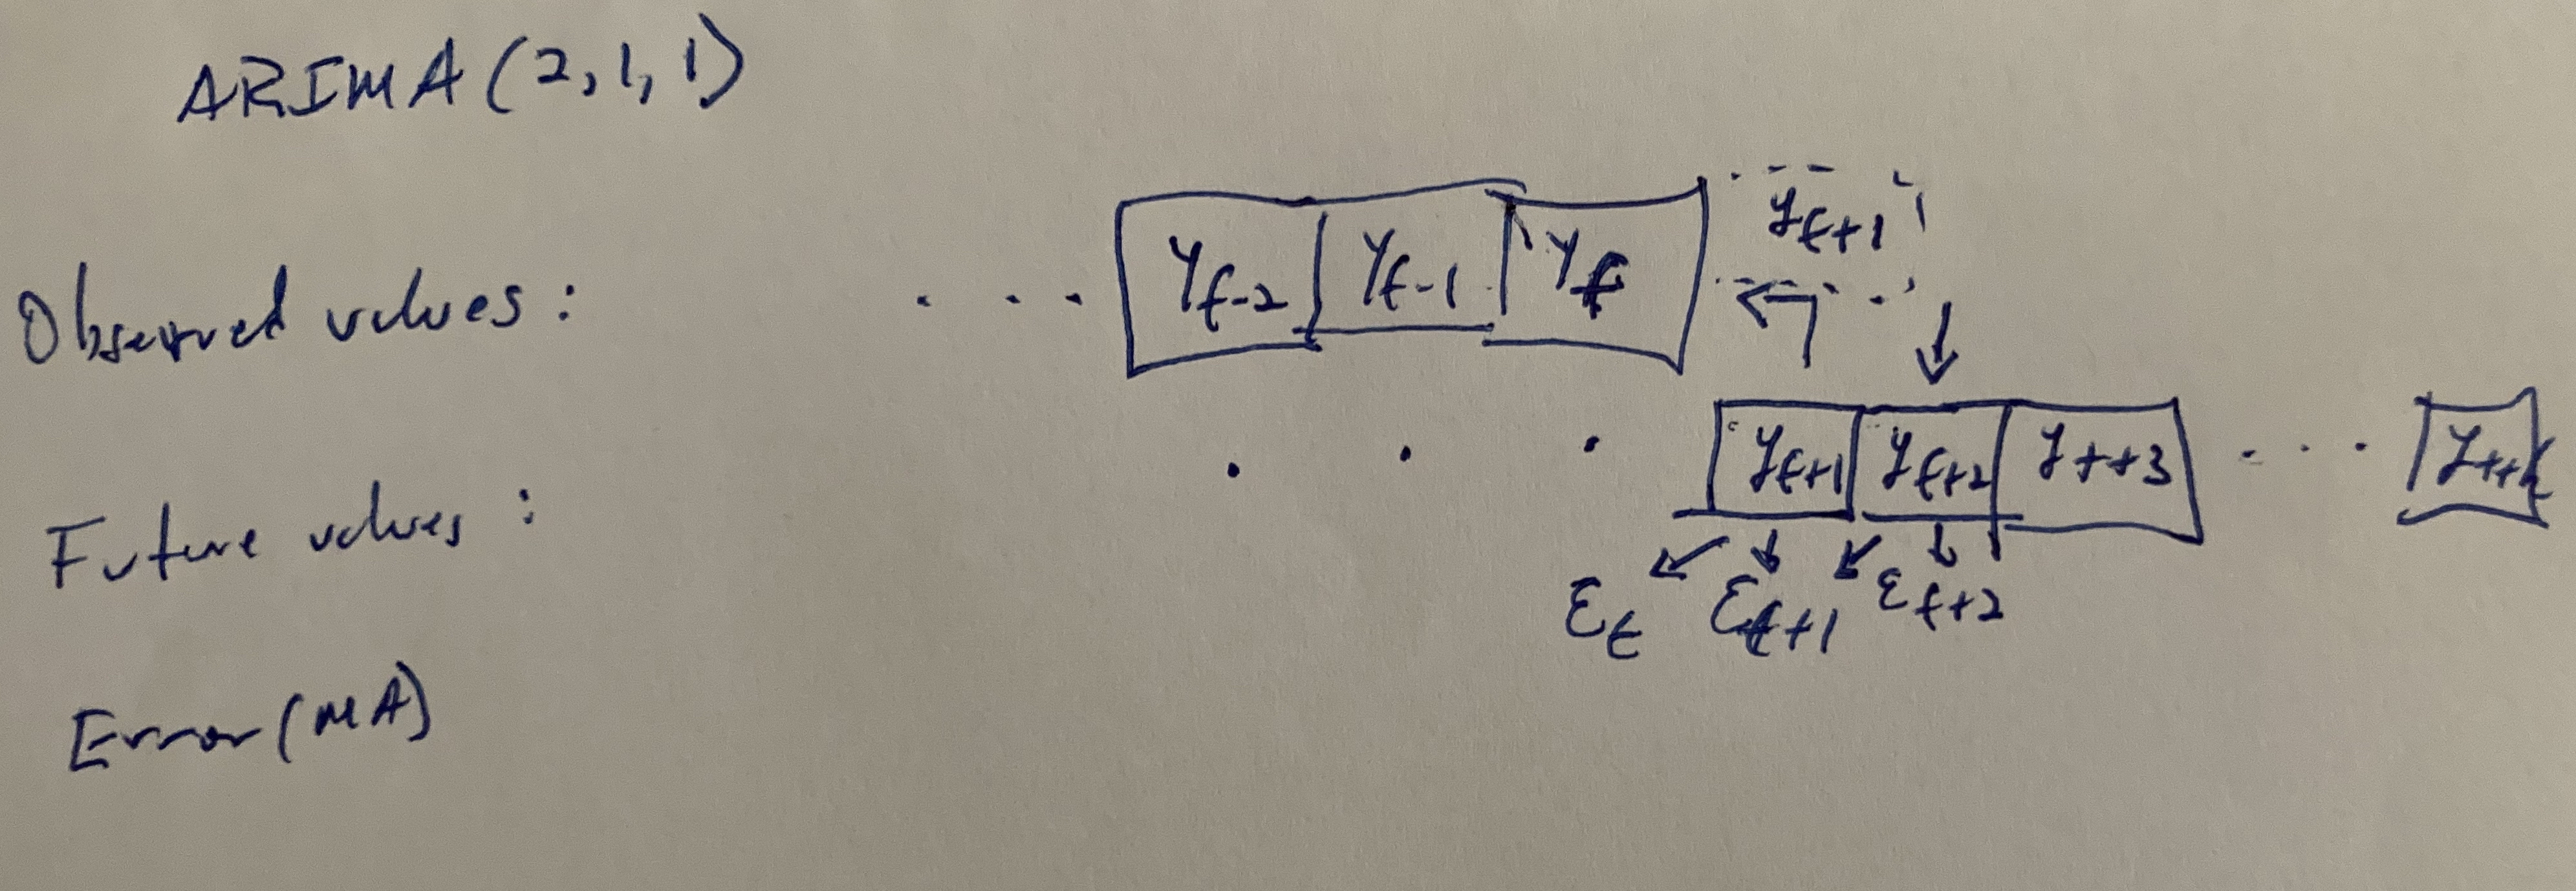 ARIMA (2,1,1)
Observed values: . . . y_{t-2} y_{t-1} y_t y_{t+1}
Future values: . . . y_{t+1} y_{t+2} y_{t+3} . . . y_{t+k}
Error (MA) ε_t ε_{t+1} ε_{t+2}